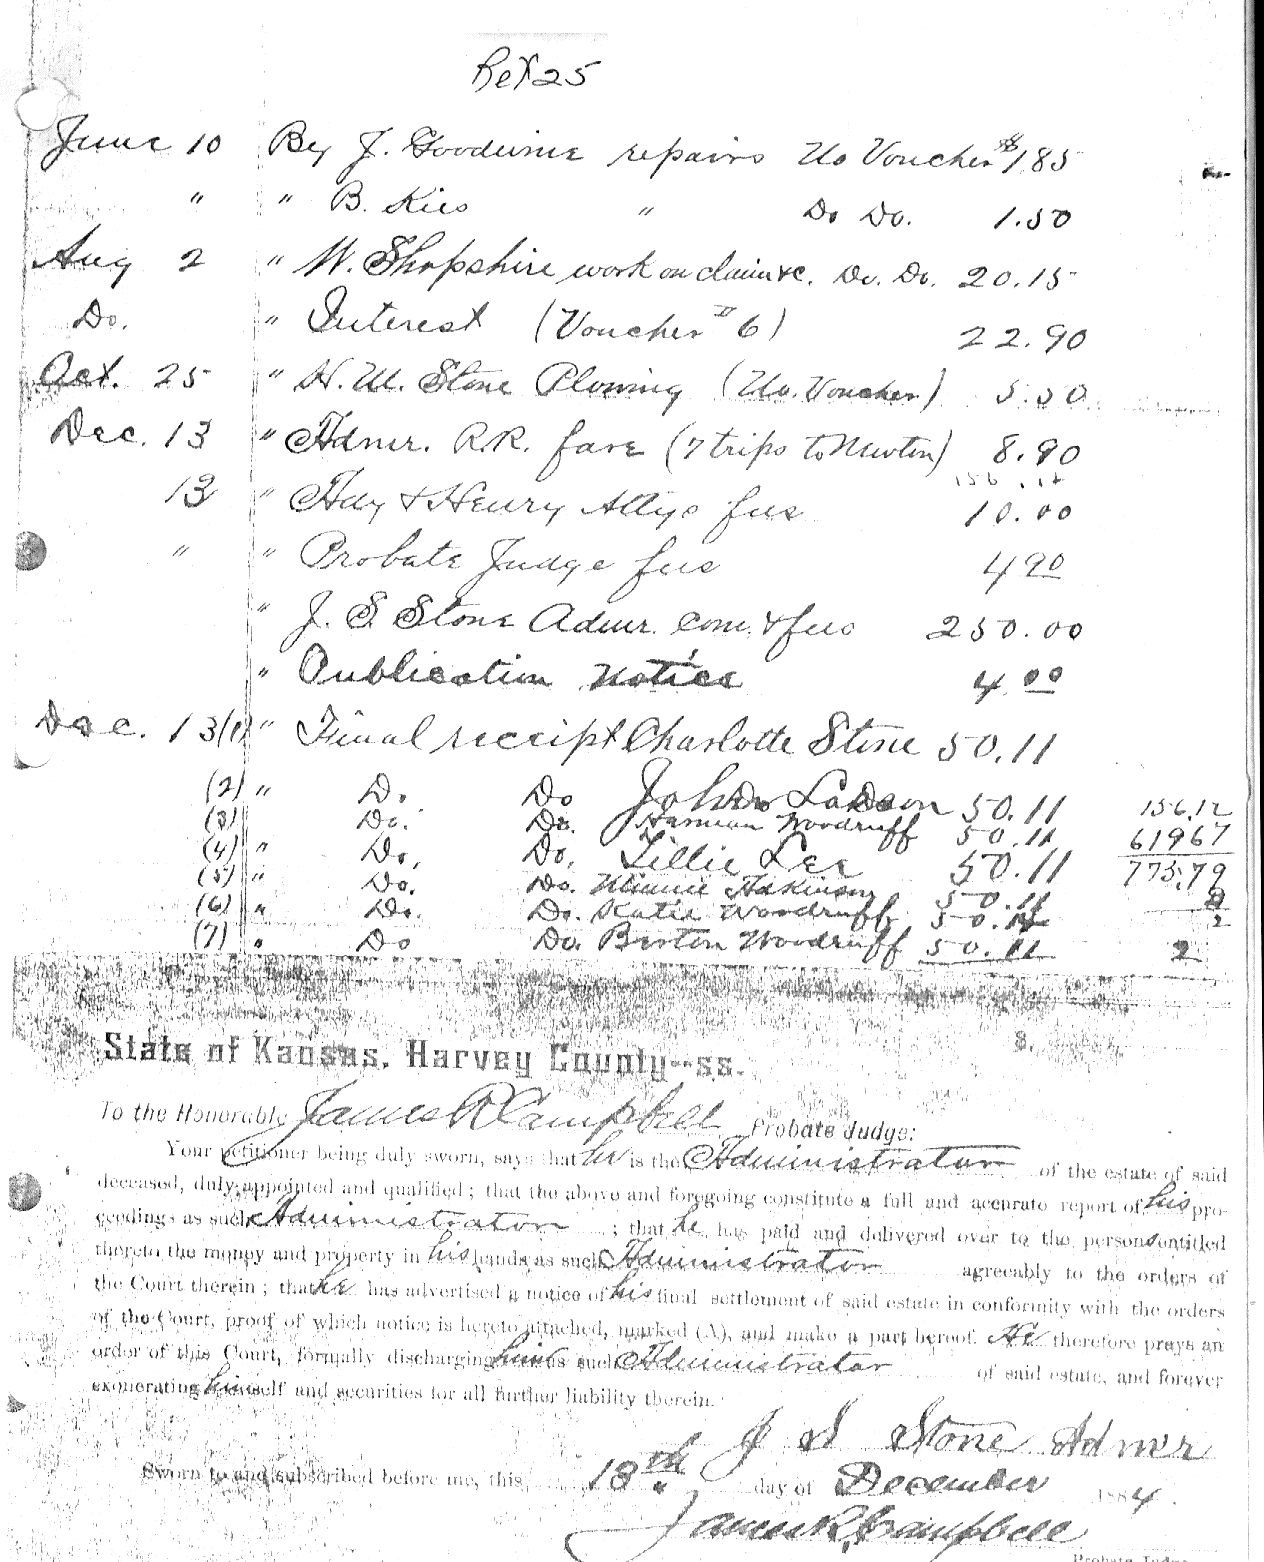 June 10 By J. Goodwine repairs No Voucher $1.85
" " B. Kies " Do Do. 1.50
Aug 2 " W. Shopshire work on claim &c. Do. Do. 20.15
Do. " Interest (Voucher # 6) 22.90
Oct. 25 " H. M. Stone Plowing (No. Voucher) 5.50
Dec. 13 " Admr. R.R. fare (7 trips to Newton) 8.90
156.12
13 " Hay & Henry Attys fees 10.00
" " Probate Judge fees 4 90
" J. S. Stone Admr. com. & fees 250.00
" Publication Notice 4.00
Dec. 13 (1) " Final receipt Charlotte Stone 50.11
(2) " Do Do John 50.11 156.12
(3) " Do. Do. Woodruff 50.11 619 67
(4) " Do, Do, Lillie Lee 50.11 775.79
(5) " Do. Do. Minnie Adkinson 50.11
(6) " Do. Do. Katie Woodruff 50.11 2
(7) " Do Do. Burton Woodruff 50.11 2
State of Kansas, Harvey County--ss.
To the Honorable James R Campbell Probate Judge:
Your petitioner being duly sworn, says that he is the Administrator of the estate of said
deceased, duly appointed and qualified; that the above and foregoing constitute a full and accurate report of his pro-
ceedings as such Administrator ; that he has paid and delivered over to the persons entitled
thereto the money and property in his hands as such Administrator agreeably to the orders of
the Court therein; that he has advertised a notice of his final settlement of said estate in conformity with the orders
of the Court, proof of which notice is hereto attached, marked (A), and make a part hereof. He therefore prays an
order of this Court, formally discharging him as such Administrator of said estate, and forever
exonerating himself and securities for all further liability therein.
J S Stone Admr
Sworn to and subscribed before me, this 13th day of December 1884.
James R. Campbell
Probate Judge